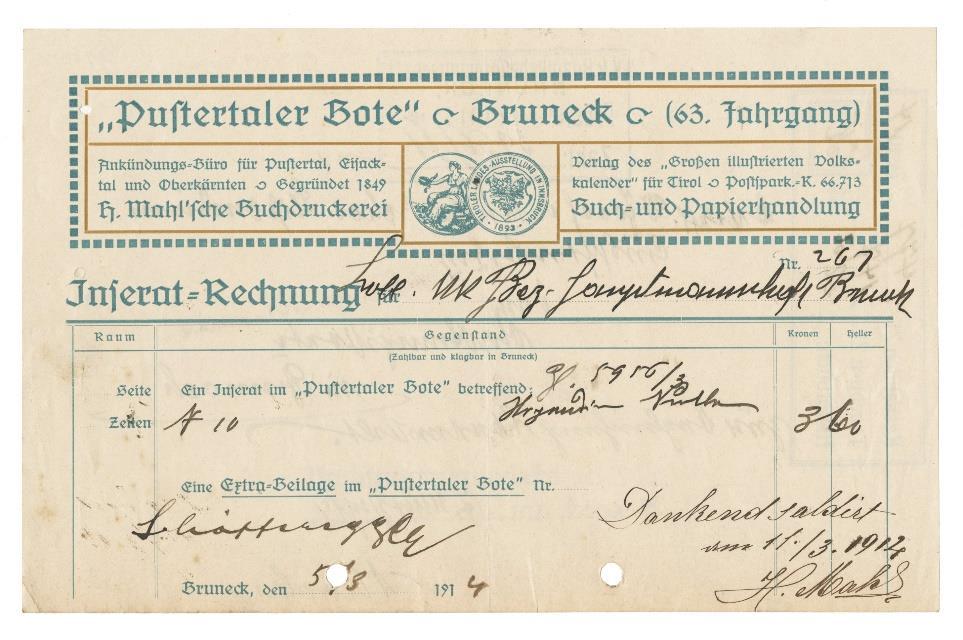 „Pustertaler Bote“ Bruneck (63. Jahrgang)
Ankündungs-Büro für Pustertal, Eisack-
tal und Oberkärnten Gegründet 1849
H. Mahl'sche Buchdruckerei
TIROLER LANDES-AUSSTELLUNG IN INNSBRUCK
1893
Verlag des „Großen illustrierten Volks-
kalender“ für Tirol Postspark.-K. 66.713
Buch- und Papierhandlung
Nr. 267
Inserat-Rechnung für Löbl. KK Bez. Hauptmannschaft Bruneck
Raum
Gegenstand
Kronen
Heller
(Zahlbar und klagbar in Bruneck)
Seite
Ein Inserat im „Pustertaler Bote“ betreffend:
Zeilen
N 10
3 60
Eine Extra-Beilage im „Pustertaler Bote“ Nr.
Dankend saldirt
am 11./3. 1914
H. Mahl
Bruneck, den 5/3 1914